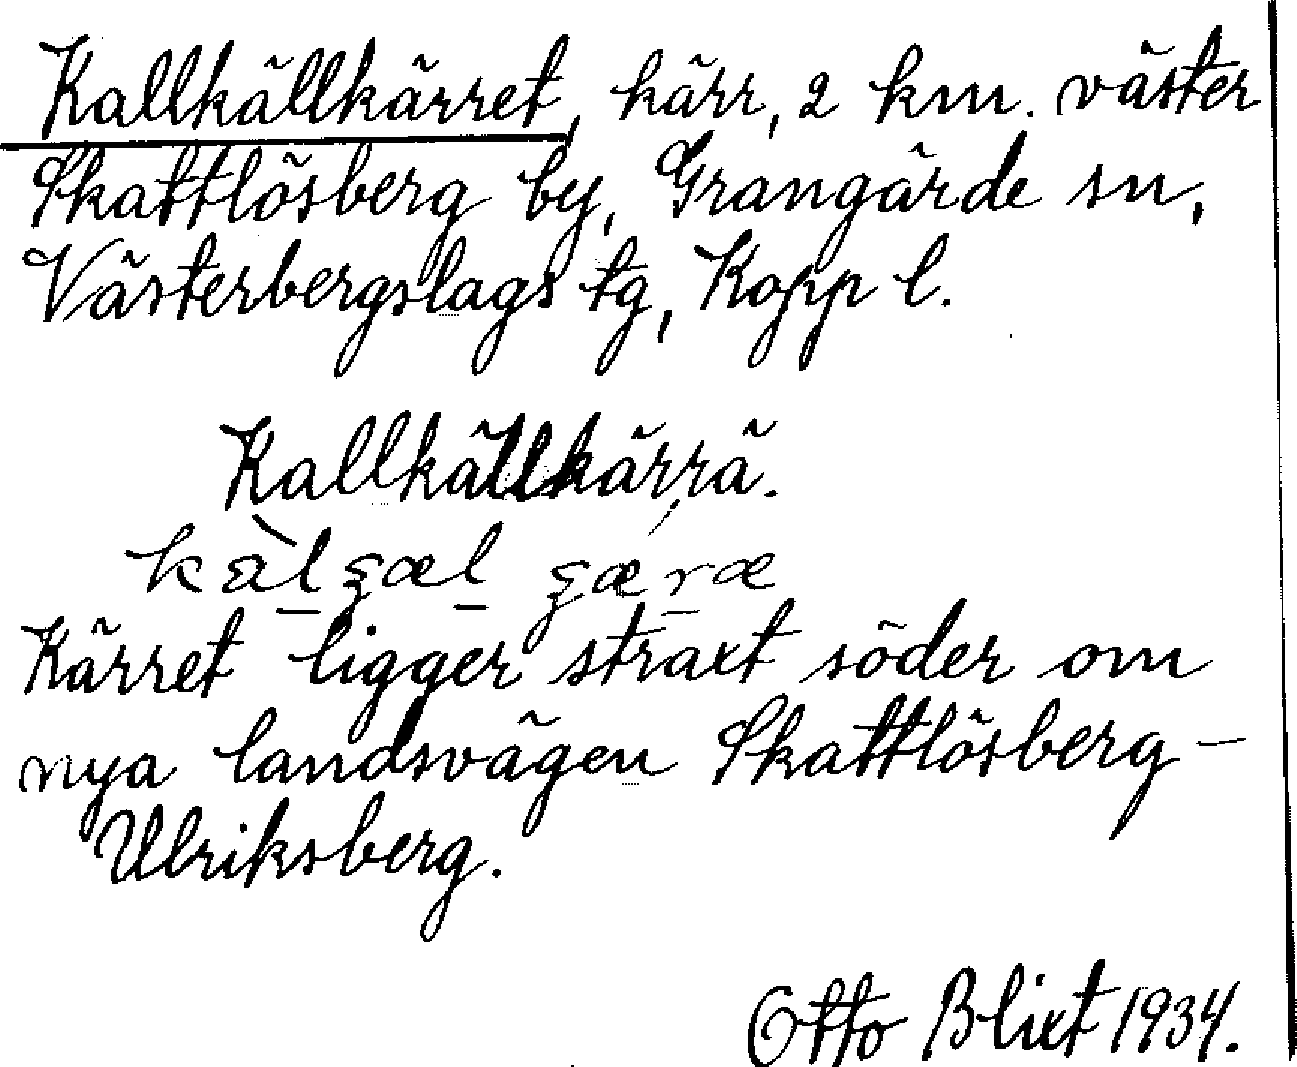 Kallkällkärret, kärr, 2 km. väster
Skattlösberg by, Grangärde sn,
Västerbergslags tg, Kopp l.
Kallkällkärrä.
kàlʂæl ʂæræ
Kärret ligger straxt söder om
nya landsvägen Skattlösberg–
Ulriksberg.
Otto Blixt 1934.